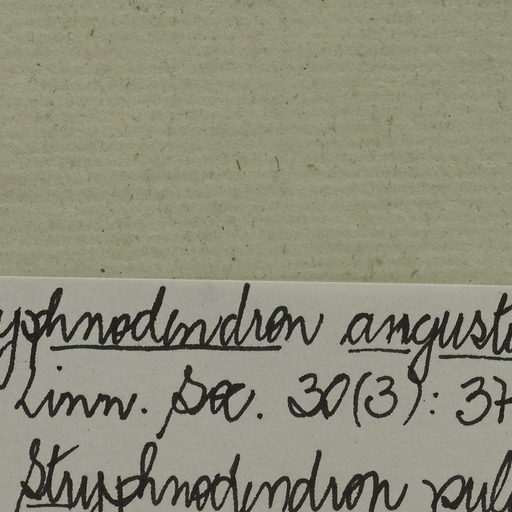 yphnodendron angust
Linn. Soc. 30(3): 37
Stryphnodendron pul